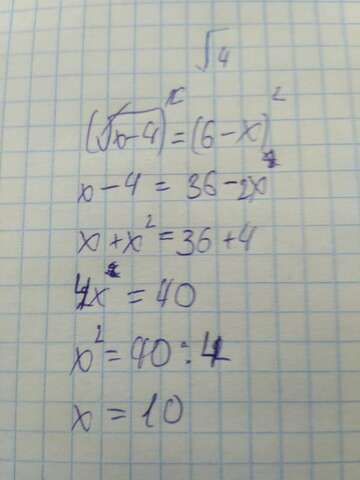 √4
(√x-4)² = (6-x)²
x-4 = 36-2x
x+x² = 36+4
4x = 40
x² = 40:4
x = 10